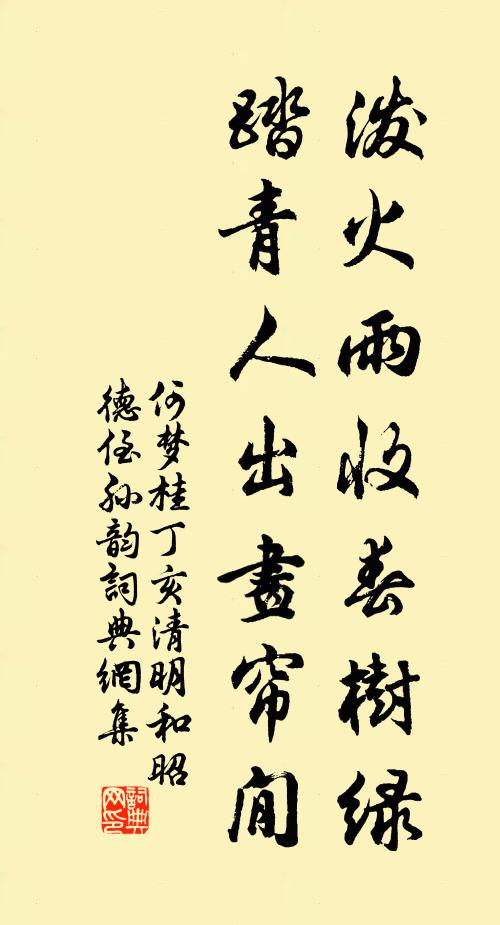 泼火雨收春樹緑
踏青人出畫帘間
何梦桂丁亥清明和昭
德侄孙韵詞典網集
詞典网印